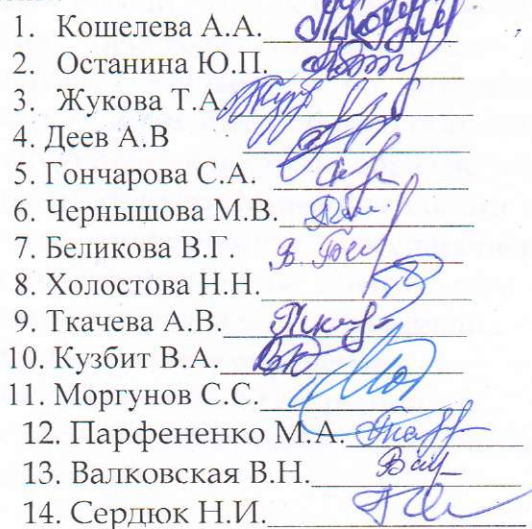 1. Кошелева А.А.
2. Останина Ю.П.
3. Жукова Т.А.
4. Деев А.В
5. Гончарова С.А.
6. Чернышова М.В.
7. Беликова В.Г.
8. Холостова Н.Н.
9. Ткачева А.В.
10. Кузбит В.А.
11. Моргунов С.С.
12. Парфененко М.А.
13. Валковская В.Н.
14. Сердюк Н.И.